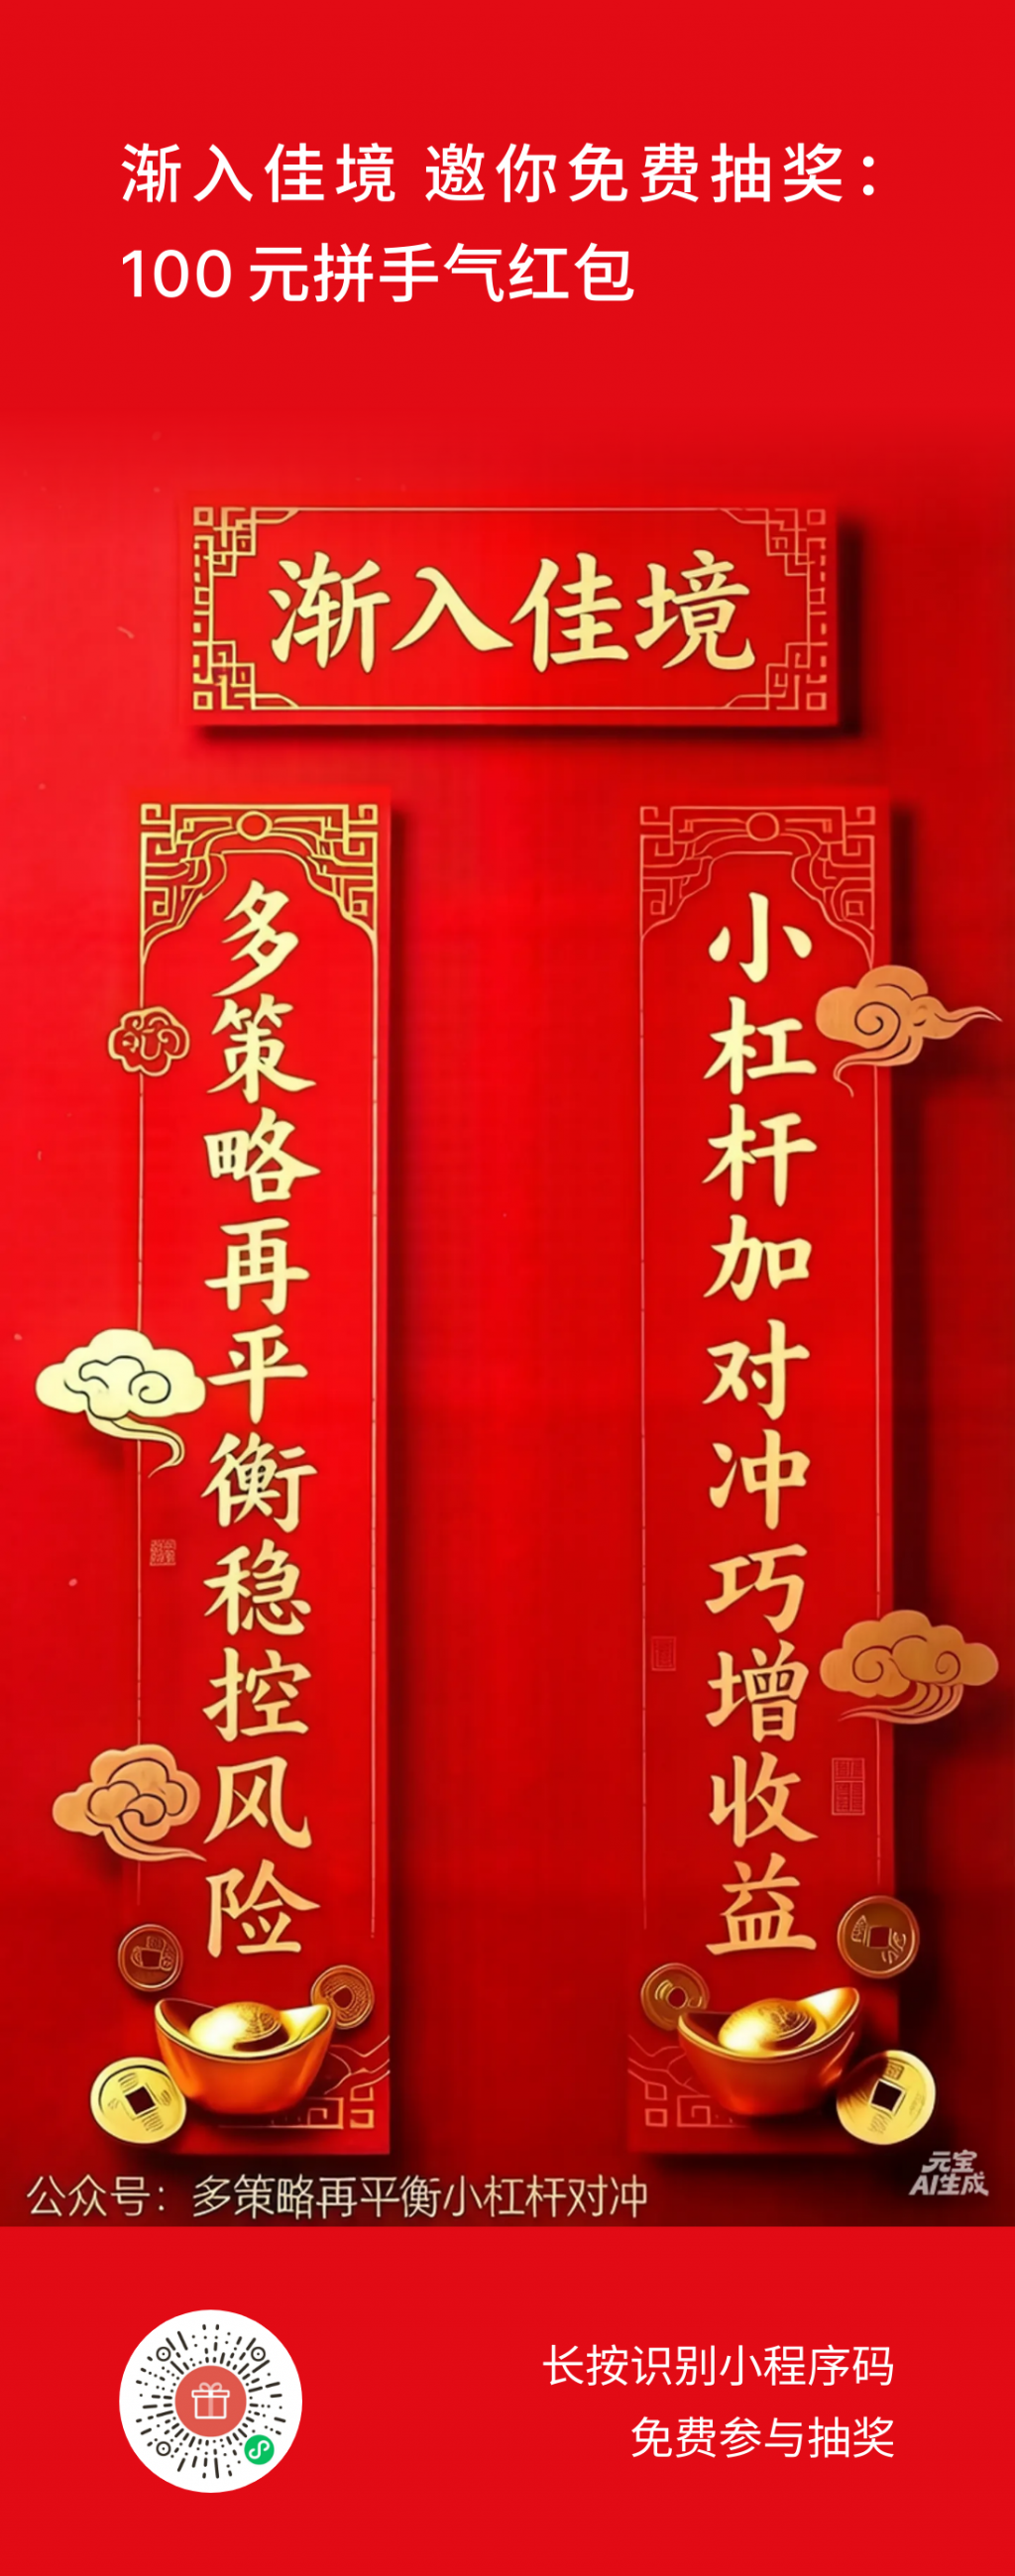 渐入佳境 邀你免费抽奖：
100 元拼手气红包
渐入佳境
多策略再平衡稳控风险
小杠杆加对冲巧增收益
公众号：多策略再平衡小杠杆对冲
元宝
AI生成
长按识别小程序码
免费参与抽奖